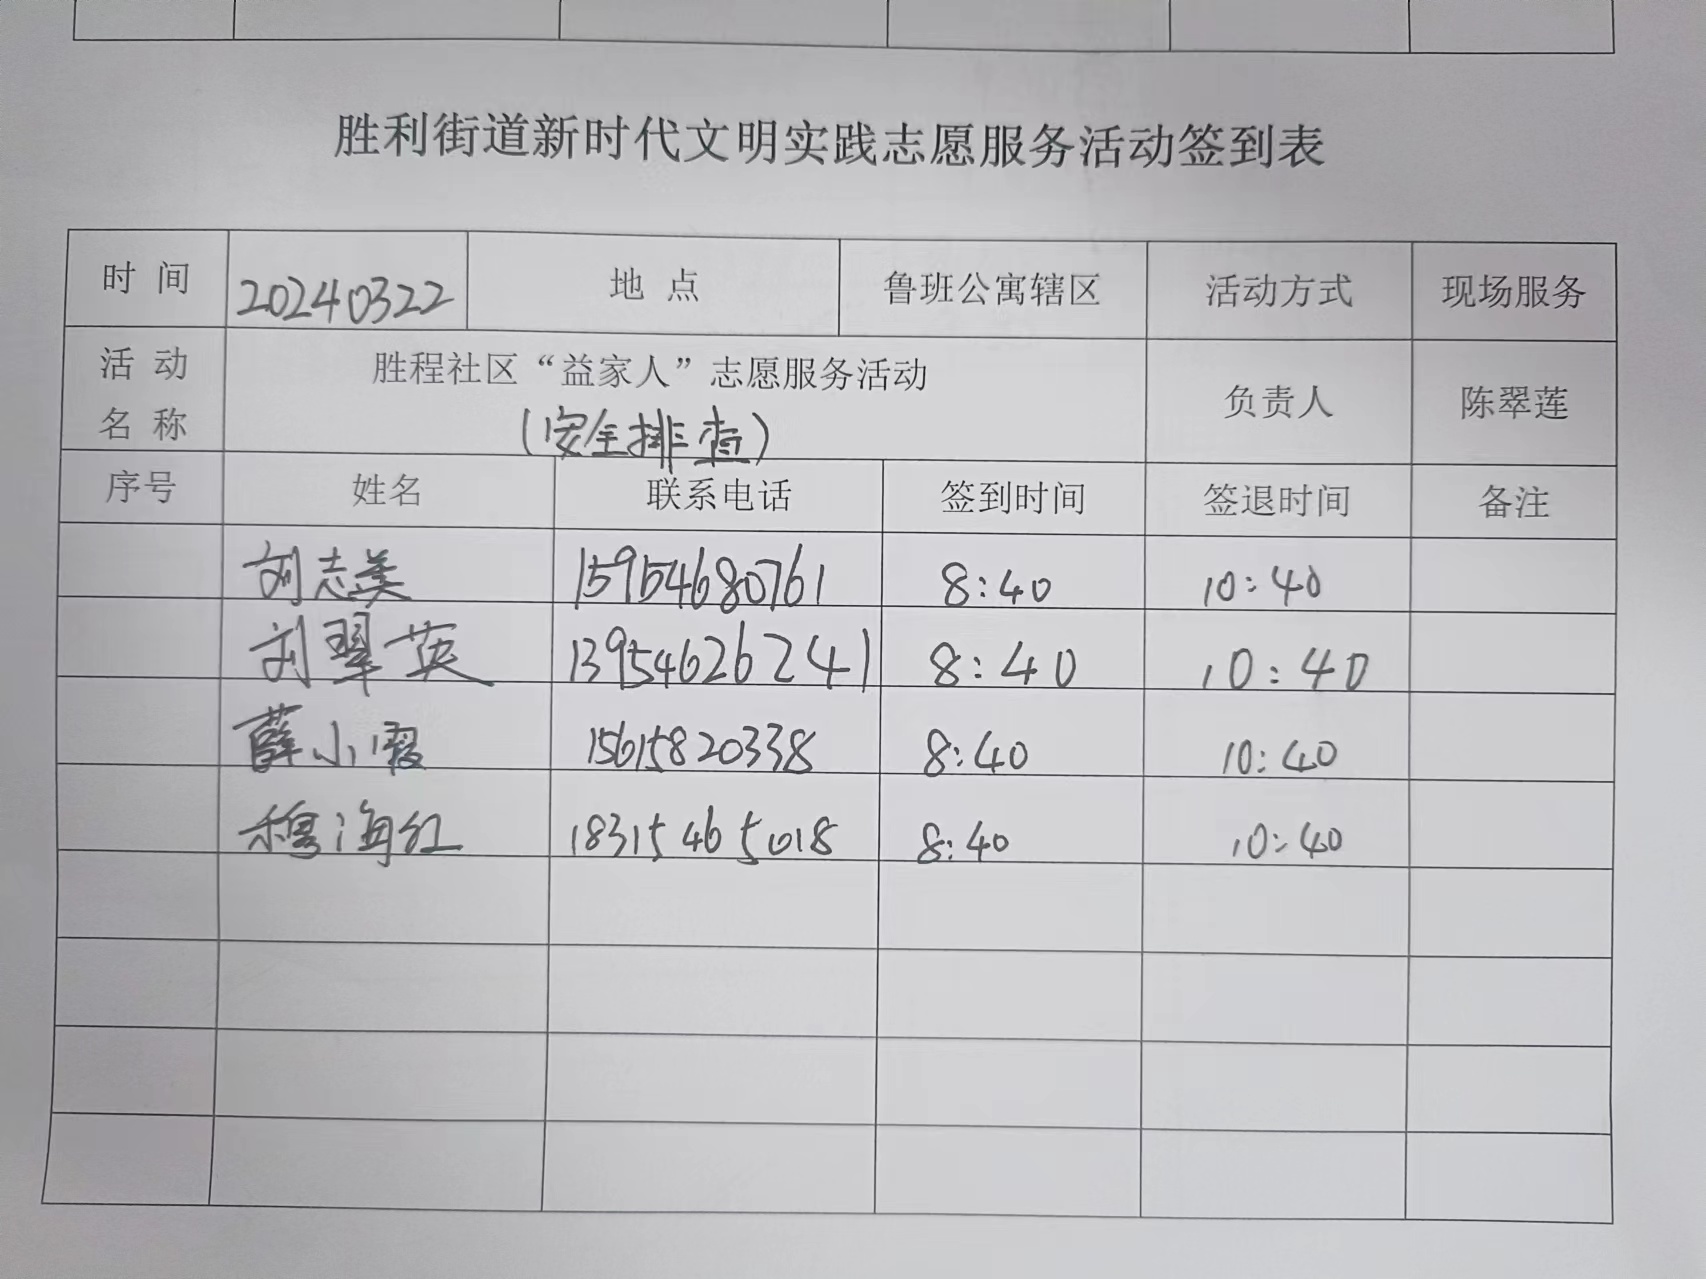 胜利街道新时代文明实践志愿服务活动签到表
时 间 20240322 地 点 鲁班公寓辖区 活动方式 现场服务
活 动 名 称 胜程社区“益家人”志愿服务活动 负责人 陈翠莲
(安全排查)
序号 姓名 联系电话 签到时间 签退时间 备注
刘志美 15954680761 8:40 10:40
刘翠英 13954626241 8:40 10:40
薛小霞 15615820338 8:40 10:40
穆海红 18315465018 8:40 10:40